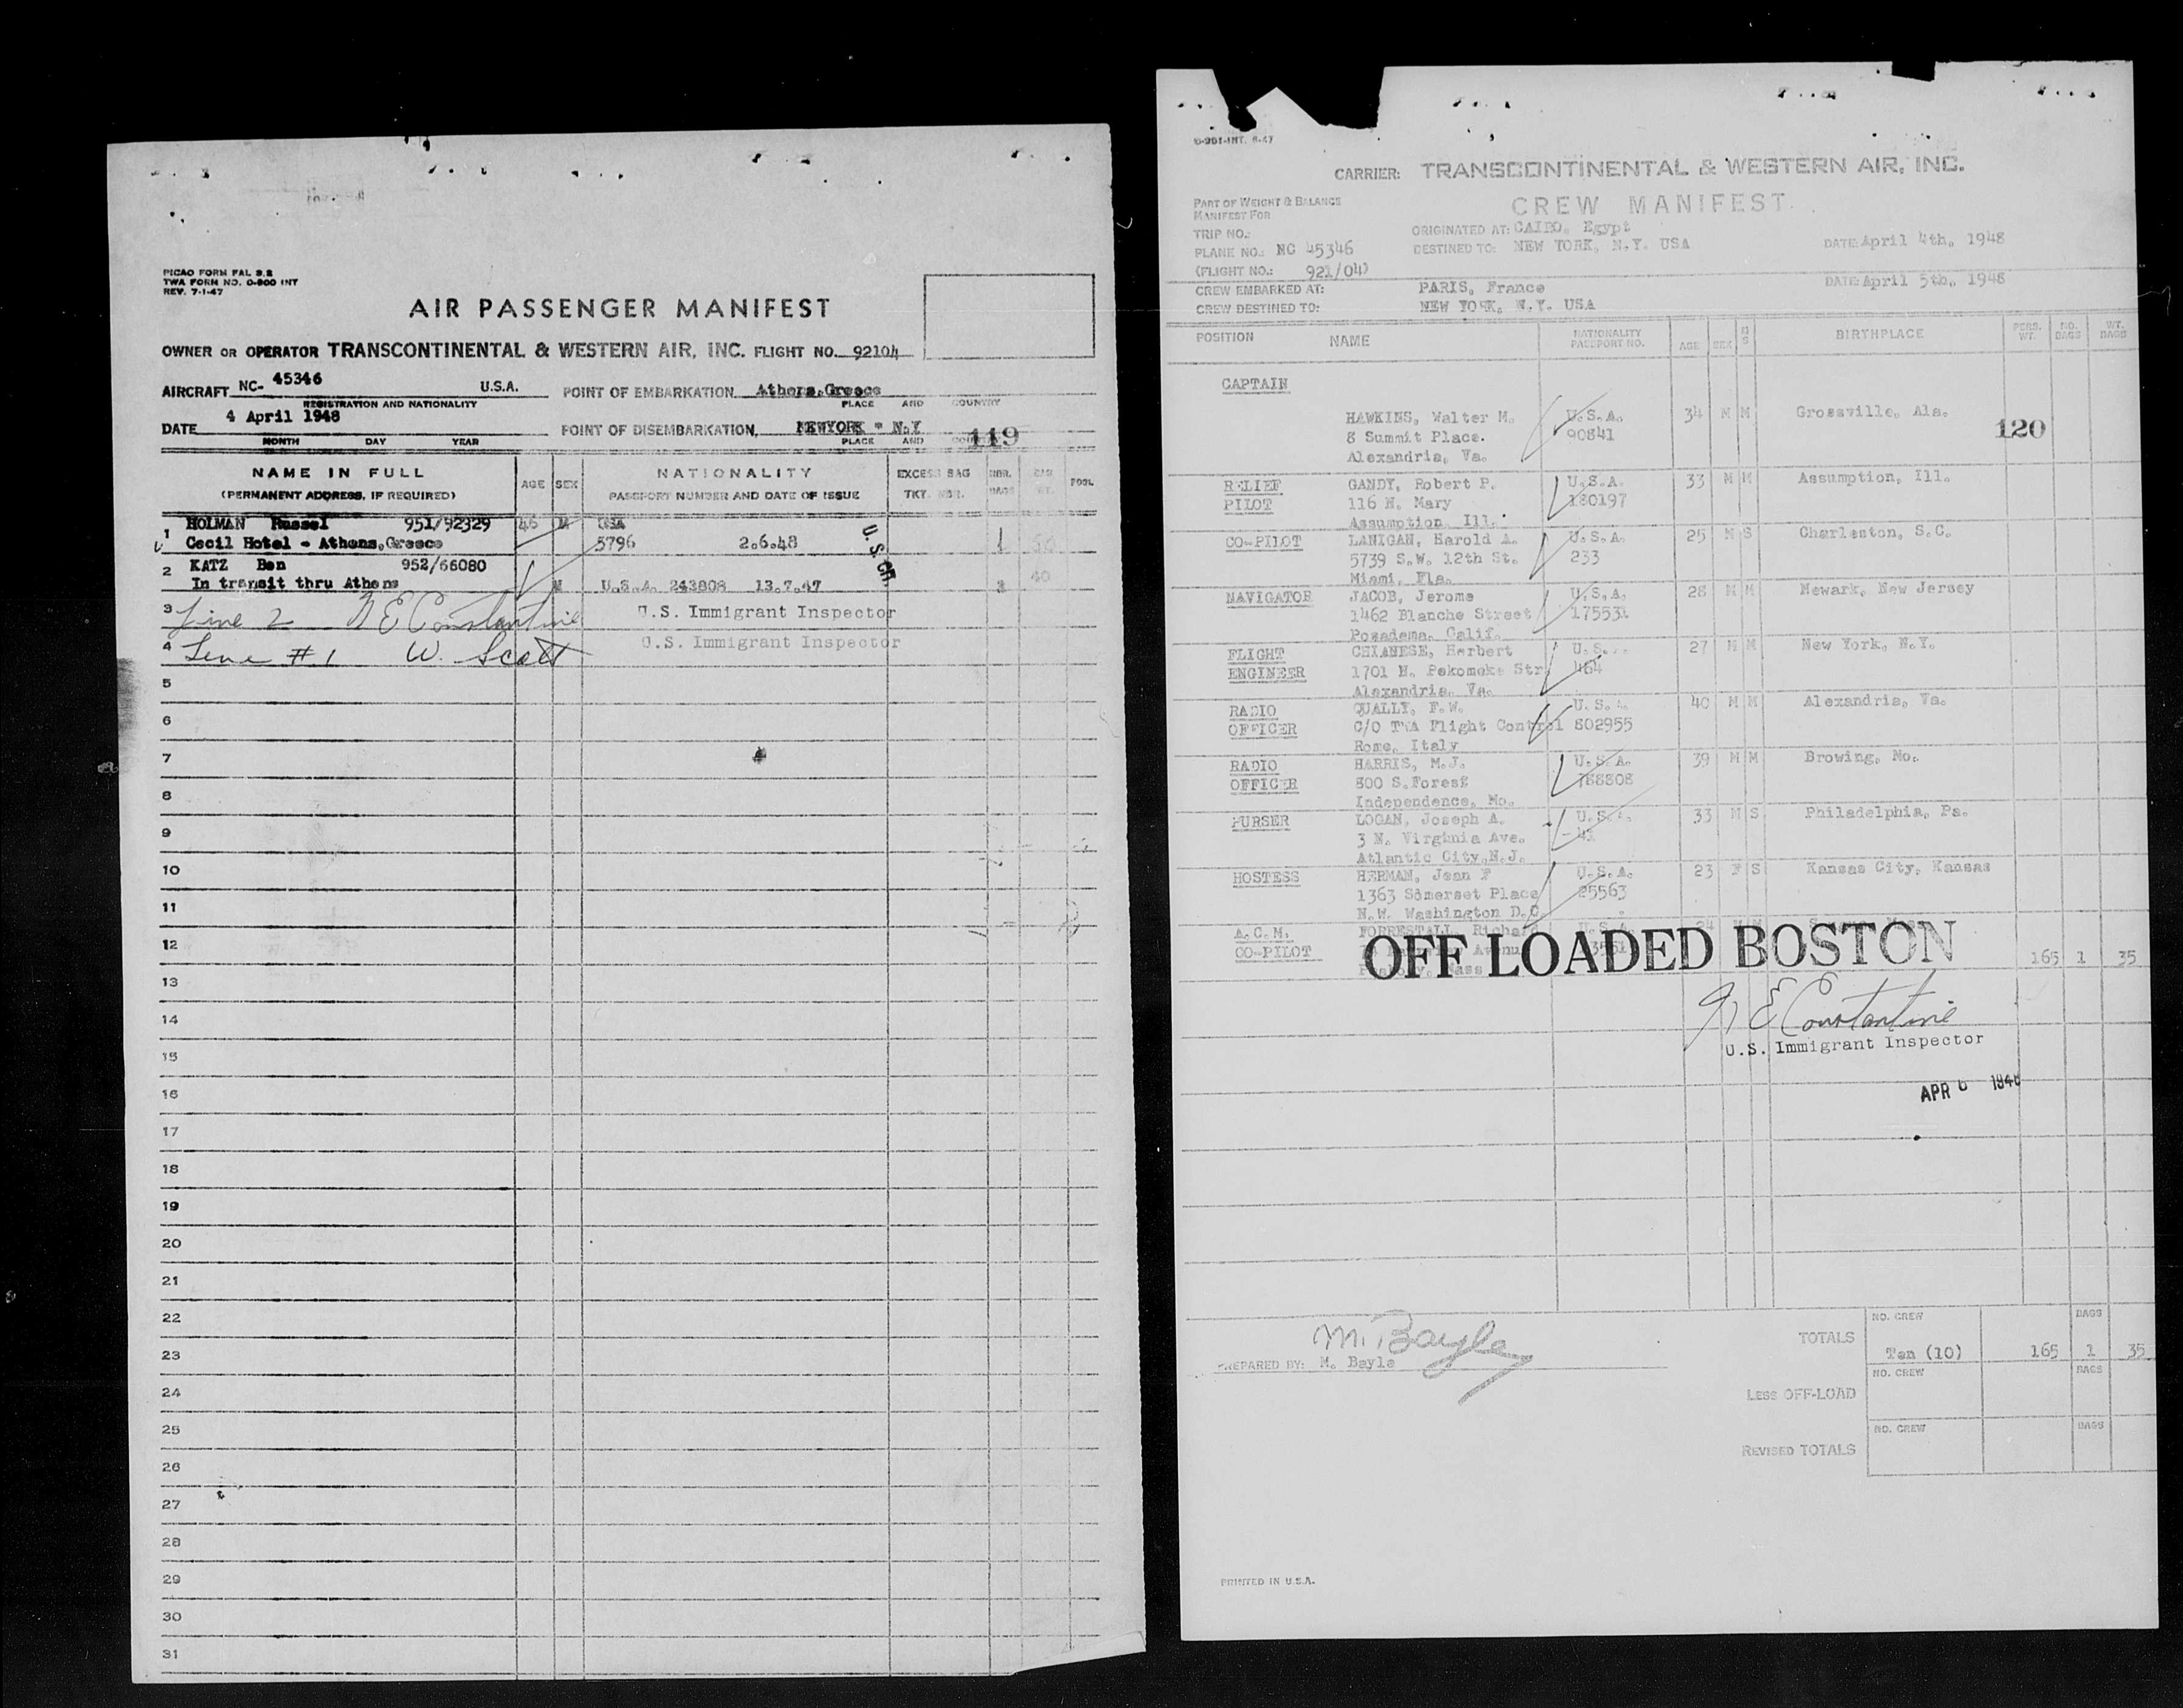 PICAO FORM FAL 2.2
TWA FORM NO. O-800 INT
REV. 7-1-47
AIR PASSENGER MANIFEST
OWNER OR OPERATOR TRANSCONTINENTAL & WESTERN AIR, INC. FLIGHT NO. 92104
AIRCRAFT NC- 45346 U.S.A. POINT OF EMBARKATION Athens,Greece
REGISTRATION AND NATIONALITY PLACE AND COUNTRY
DATE 4 April 1948 POINT OF DISEMBARKATION, NEWYORK - N.Y
MONTH DAY YEAR PLACE AND
119
NAME IN FULL AGE SEX NATIONALITY EXCESS BAG NBR. POOL
(PERMANENT ADDRESS, IF REQUIRED) PASSPORT NUMBER AND DATE OF ISSUE TKT. NBR. BAGS WT.
1 HOLMAN Russel 951/92329 46 M USA
Cecil Hotel - Athens,Greece 5796 2.6.48 1
U.S.
2 KATZ Ben 952/66080
In transit thru Athens M U.S.A. 243808 13.7.47 40
3 Line 2 N E Constantine U.S. Immigrant Inspector
4 Line #1 W. Scott U.S. Immigrant Inspector
5
6
7
8
9
10
11
12
13
14
15
16
17
18
19
20
21
22
23
24
25
26
27
28
29
30
31
O-901-INT. 8-47
CARRIER: TRANSCONTINENTAL & WESTERN AIR, INC.
CREW MANIFEST
PART OF WEIGHT & BALANCE
MANIFEST FOR
TRIP NO.: ORIGINATED AT: CAIRO, Egypt
PLANE NO.: NC 45346 DESTINED TO: NEW YORK, N.Y. USA DATE: April 4th, 1948
(FLIGHT NO.: 921/04)
CREW EMBARKED AT: PARIS, France DATE: April 5th, 1948
CREW DESTINED TO: NEW YORK, N.Y. USA
POSITION NAME NATIONALITY AGE SEX M BIRTHPLACE PERS. NO. WT.
PASSPORT NO. S WT. BAGS BAGS
CAPTAIN
HAWKINS, Walter M. U.S.A. 34 M M Grossville, Ala.
8 Summit Place. 90841
120
Alexandria, Va.
RELIEF GANDY, Robert P. U.S.A. 33 M M Assumption, Ill.
PILOT 116 N. Mary 180197
Assumption Ill.
CO-PILOT LANIGAN, Harold A. U.S.A. 25 M S Charleston, S.C.
5739 S.W. 12th St. 233
Miami, Fla.
NAVIGATOR JACOB, Jerome U.S.A. 28 M M Newark, New Jersey
1462 Blanche Street 175531
Posadema, Calif.
FLIGHT CHIANESE, Herbert U.S. 27 M M New York, N.Y.
ENGINEER 1701 N. Pekomoke Str 464
Alexandria, Va.
RADIO QUALLY, F.W. U.S. 40 M M Alexandria, Va.
OFFICER C/O TWA Flight Control 802955
Rome, Italy
RADIO HARRIS, M.J. U.S.A. 39 M M Browing, Mo.
OFFICER 800 S.Forest 788808
Independence, Mo.
PURSER LOGAN, Joseph A. U.S. 33 M S Philadelphia, Pa.
3 N. Virginia Ave. 41
Atlantic City,N.J.
HOSTESS HERMAN, Jean F U.S.A. 23 F S Kansas City, Kansas
1363 Somerset Place 25563
N.W. Washington D.C
A.C.M. FORRESTALL, Richard 24
CO-PILOT 165 1 35
OFF LOADED BOSTON
N E Constantine
U.S. Immigrant Inspector
APR 6 1948
NO. CREW BAGS
TOTALS Ten (10) 165 1 35
M. Bayle
PREPARED BY: M. Bayle
NO. CREW BAGS
LESS OFF-LOAD
NO. CREW BAGS
REVISED TOTALS
PRINTED IN U.S.A.